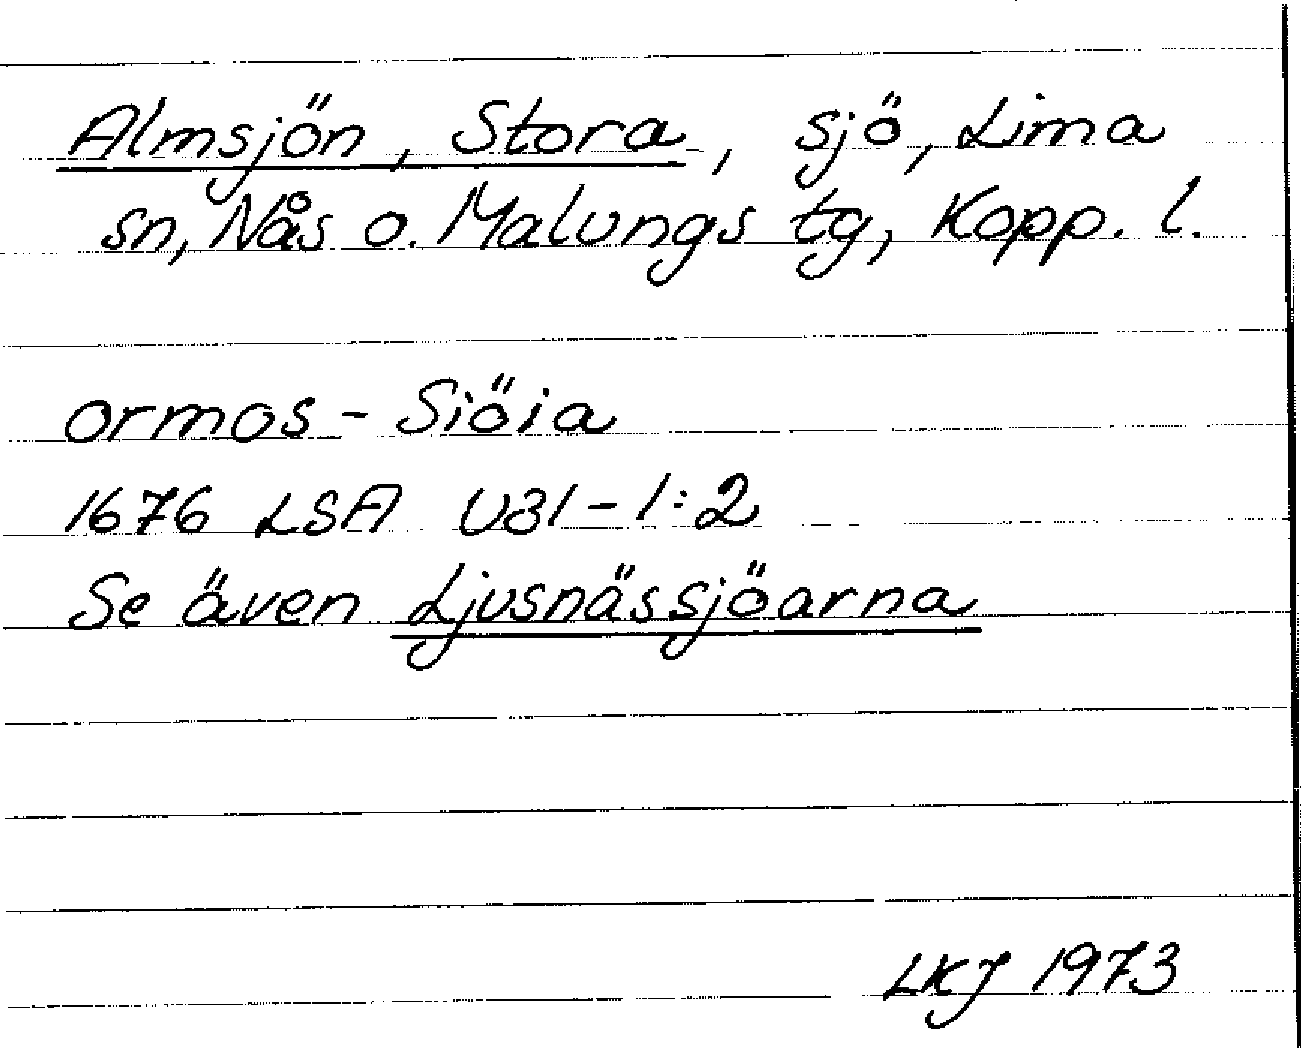 Almsjön, Stora, sjö, Lima
sn, Nås o. Malungs tg, Kopp. l.
ormos - Siöia
1676 LSA U31-1:2
Se även Ljusnässjöarna
LKJ 1973